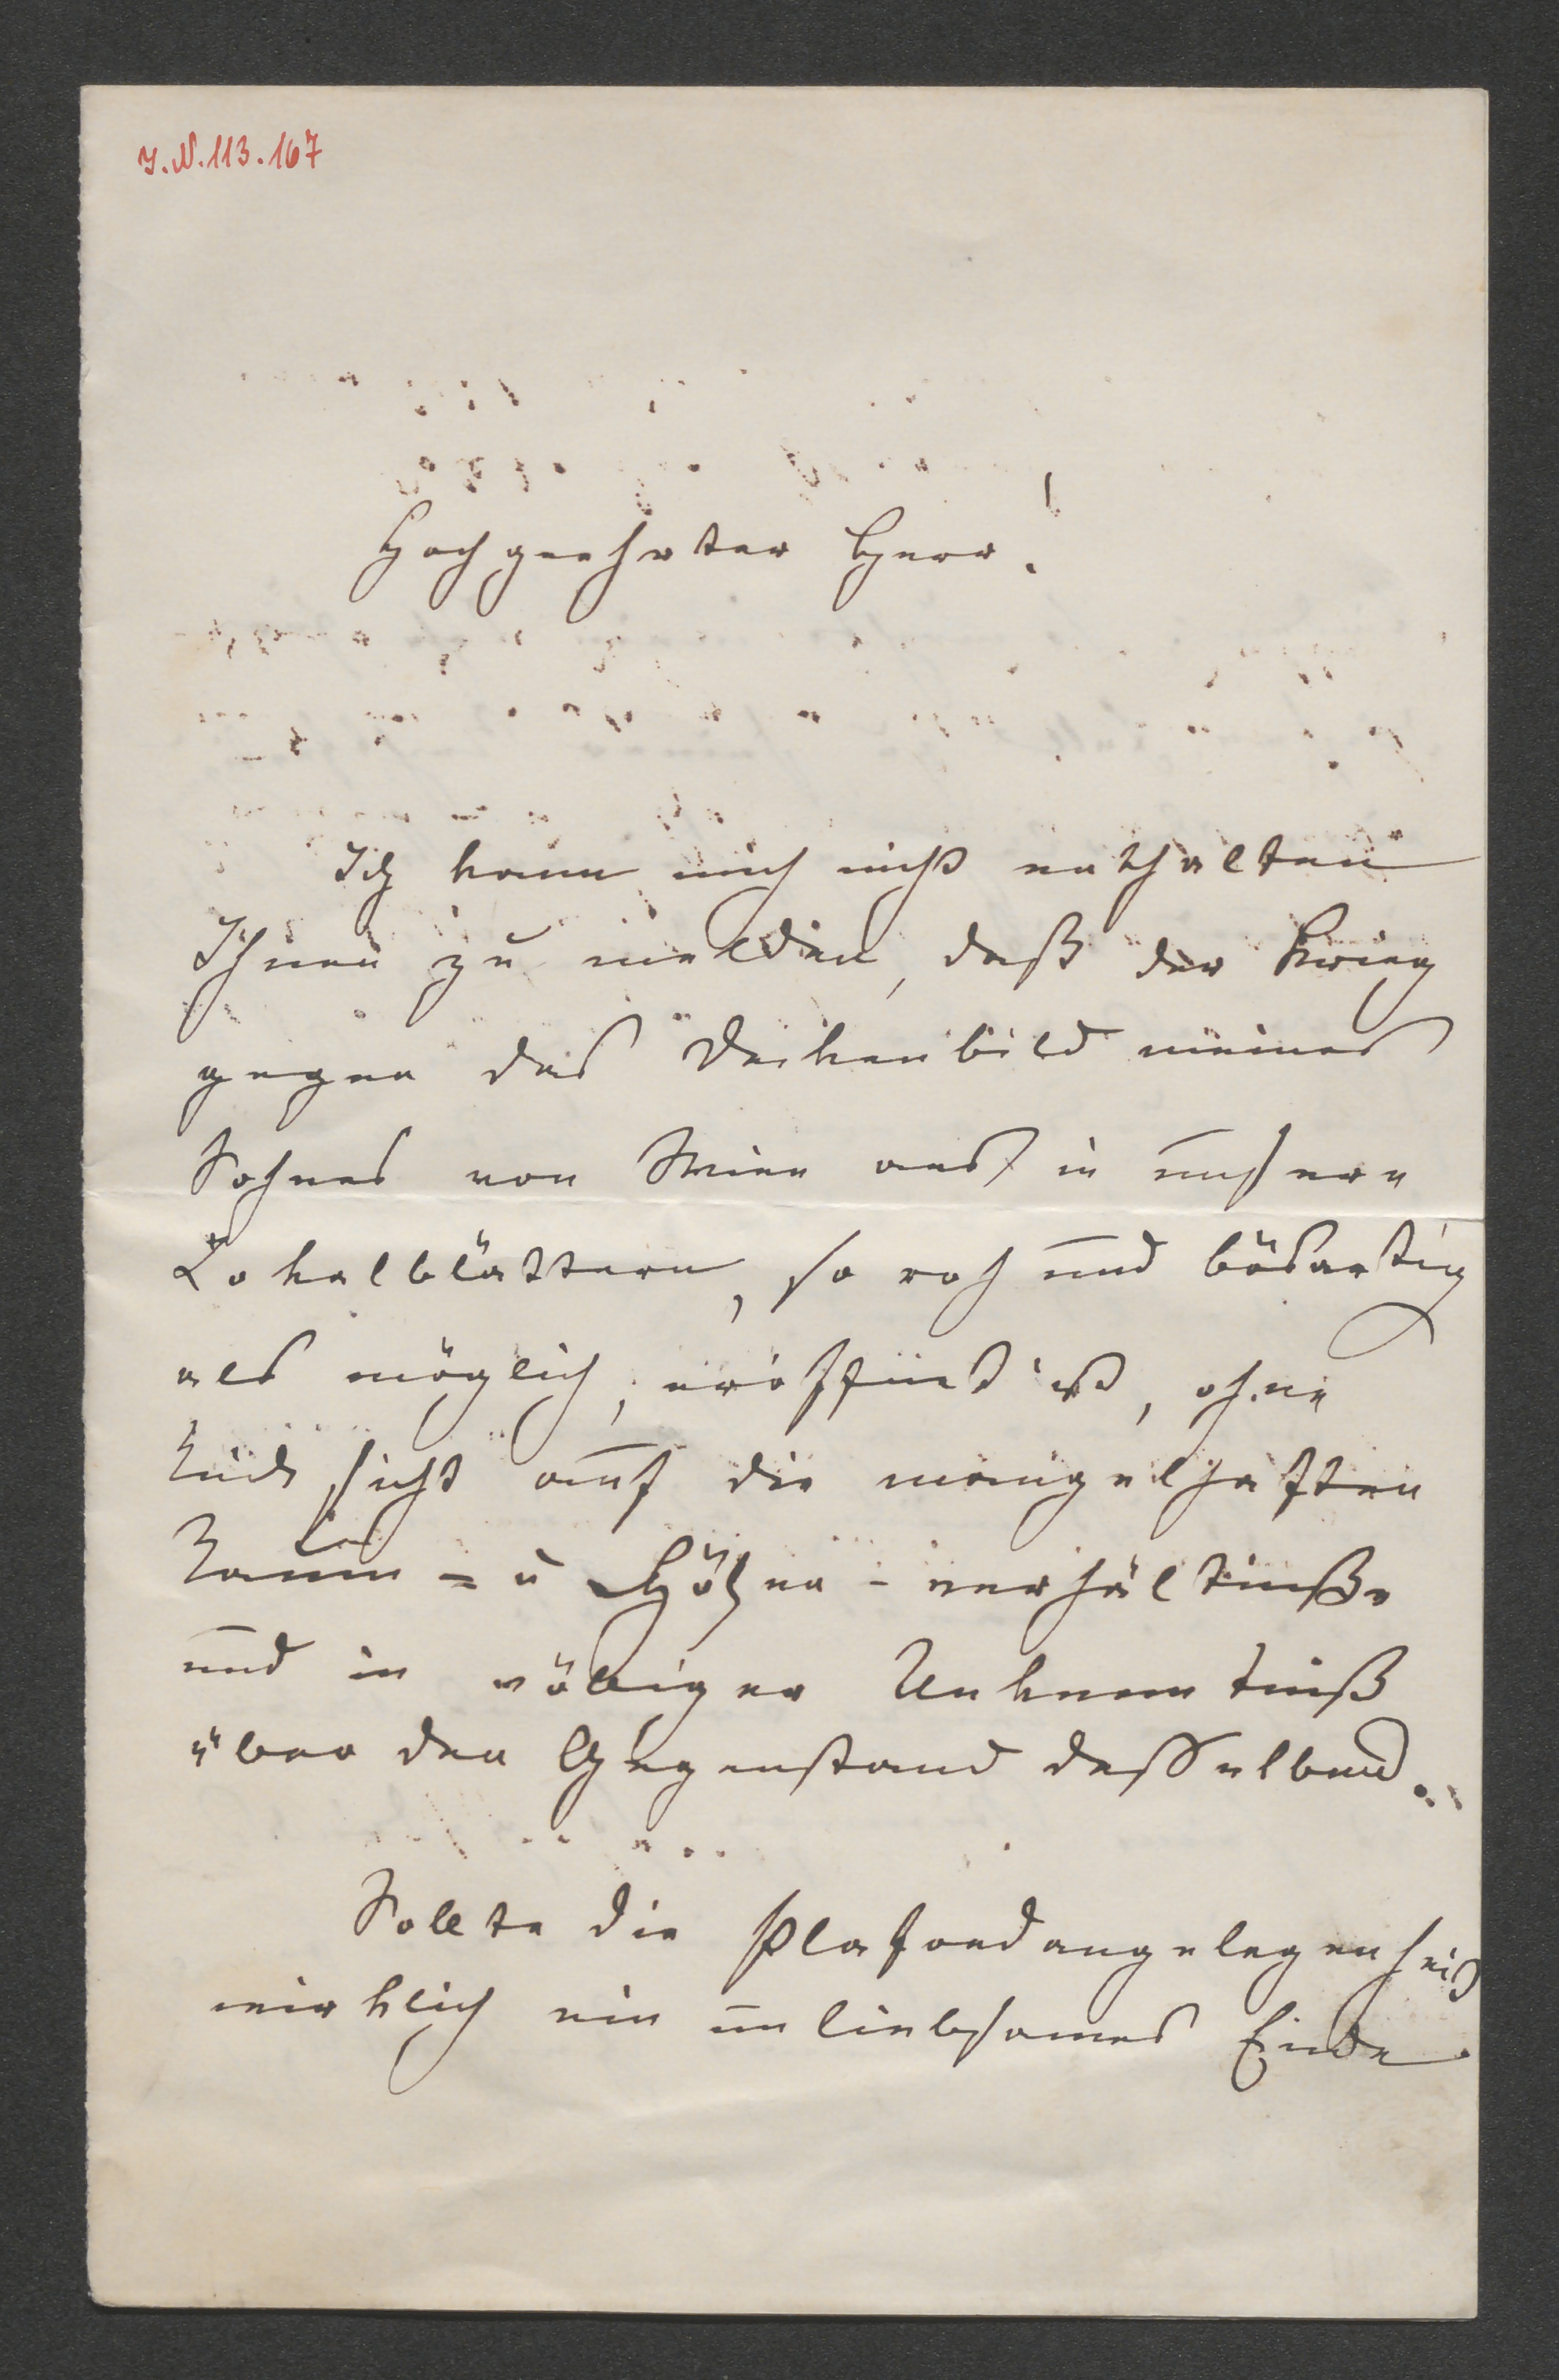 I.N. 113.167
Hochgeehrter Herr!
Ich kann mich nicht enthalten
Ihnen zu melden, daß der Krieg
gegen das Deckenbild meines
Sohnes von Wien aus in unsern
Lokalblättern, so roh und bösartig
als möglich, eröffnet ist, ohne
Rücksicht auf die mangelhaften
Raum= u Höhen-verhältniße
und in völliger Unkenntniß
über den Gegenstand desselben.
Sollte die Plafondangelegenheit
wirklich ein unliebsames Ende